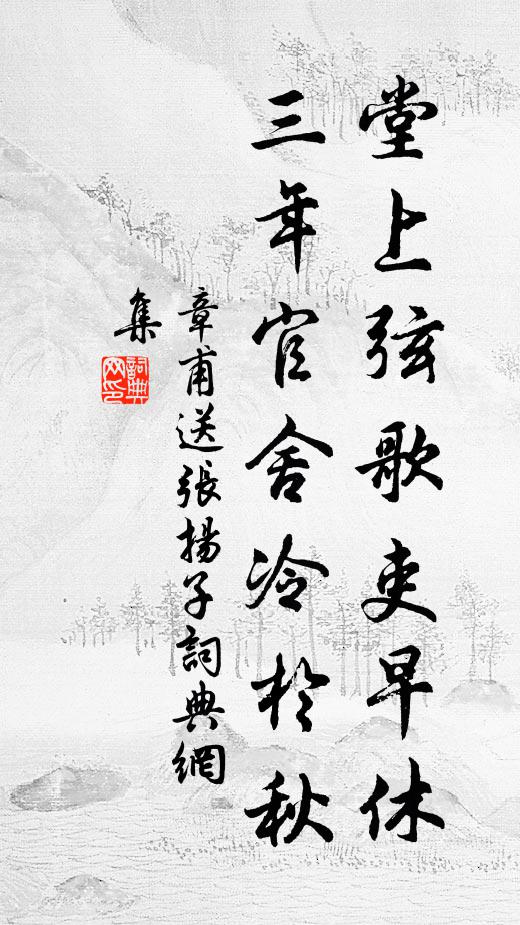 堂上弦歌吏早休
三年官舍冷於秋
章甫送張揚子詞典網
集
詞典網印